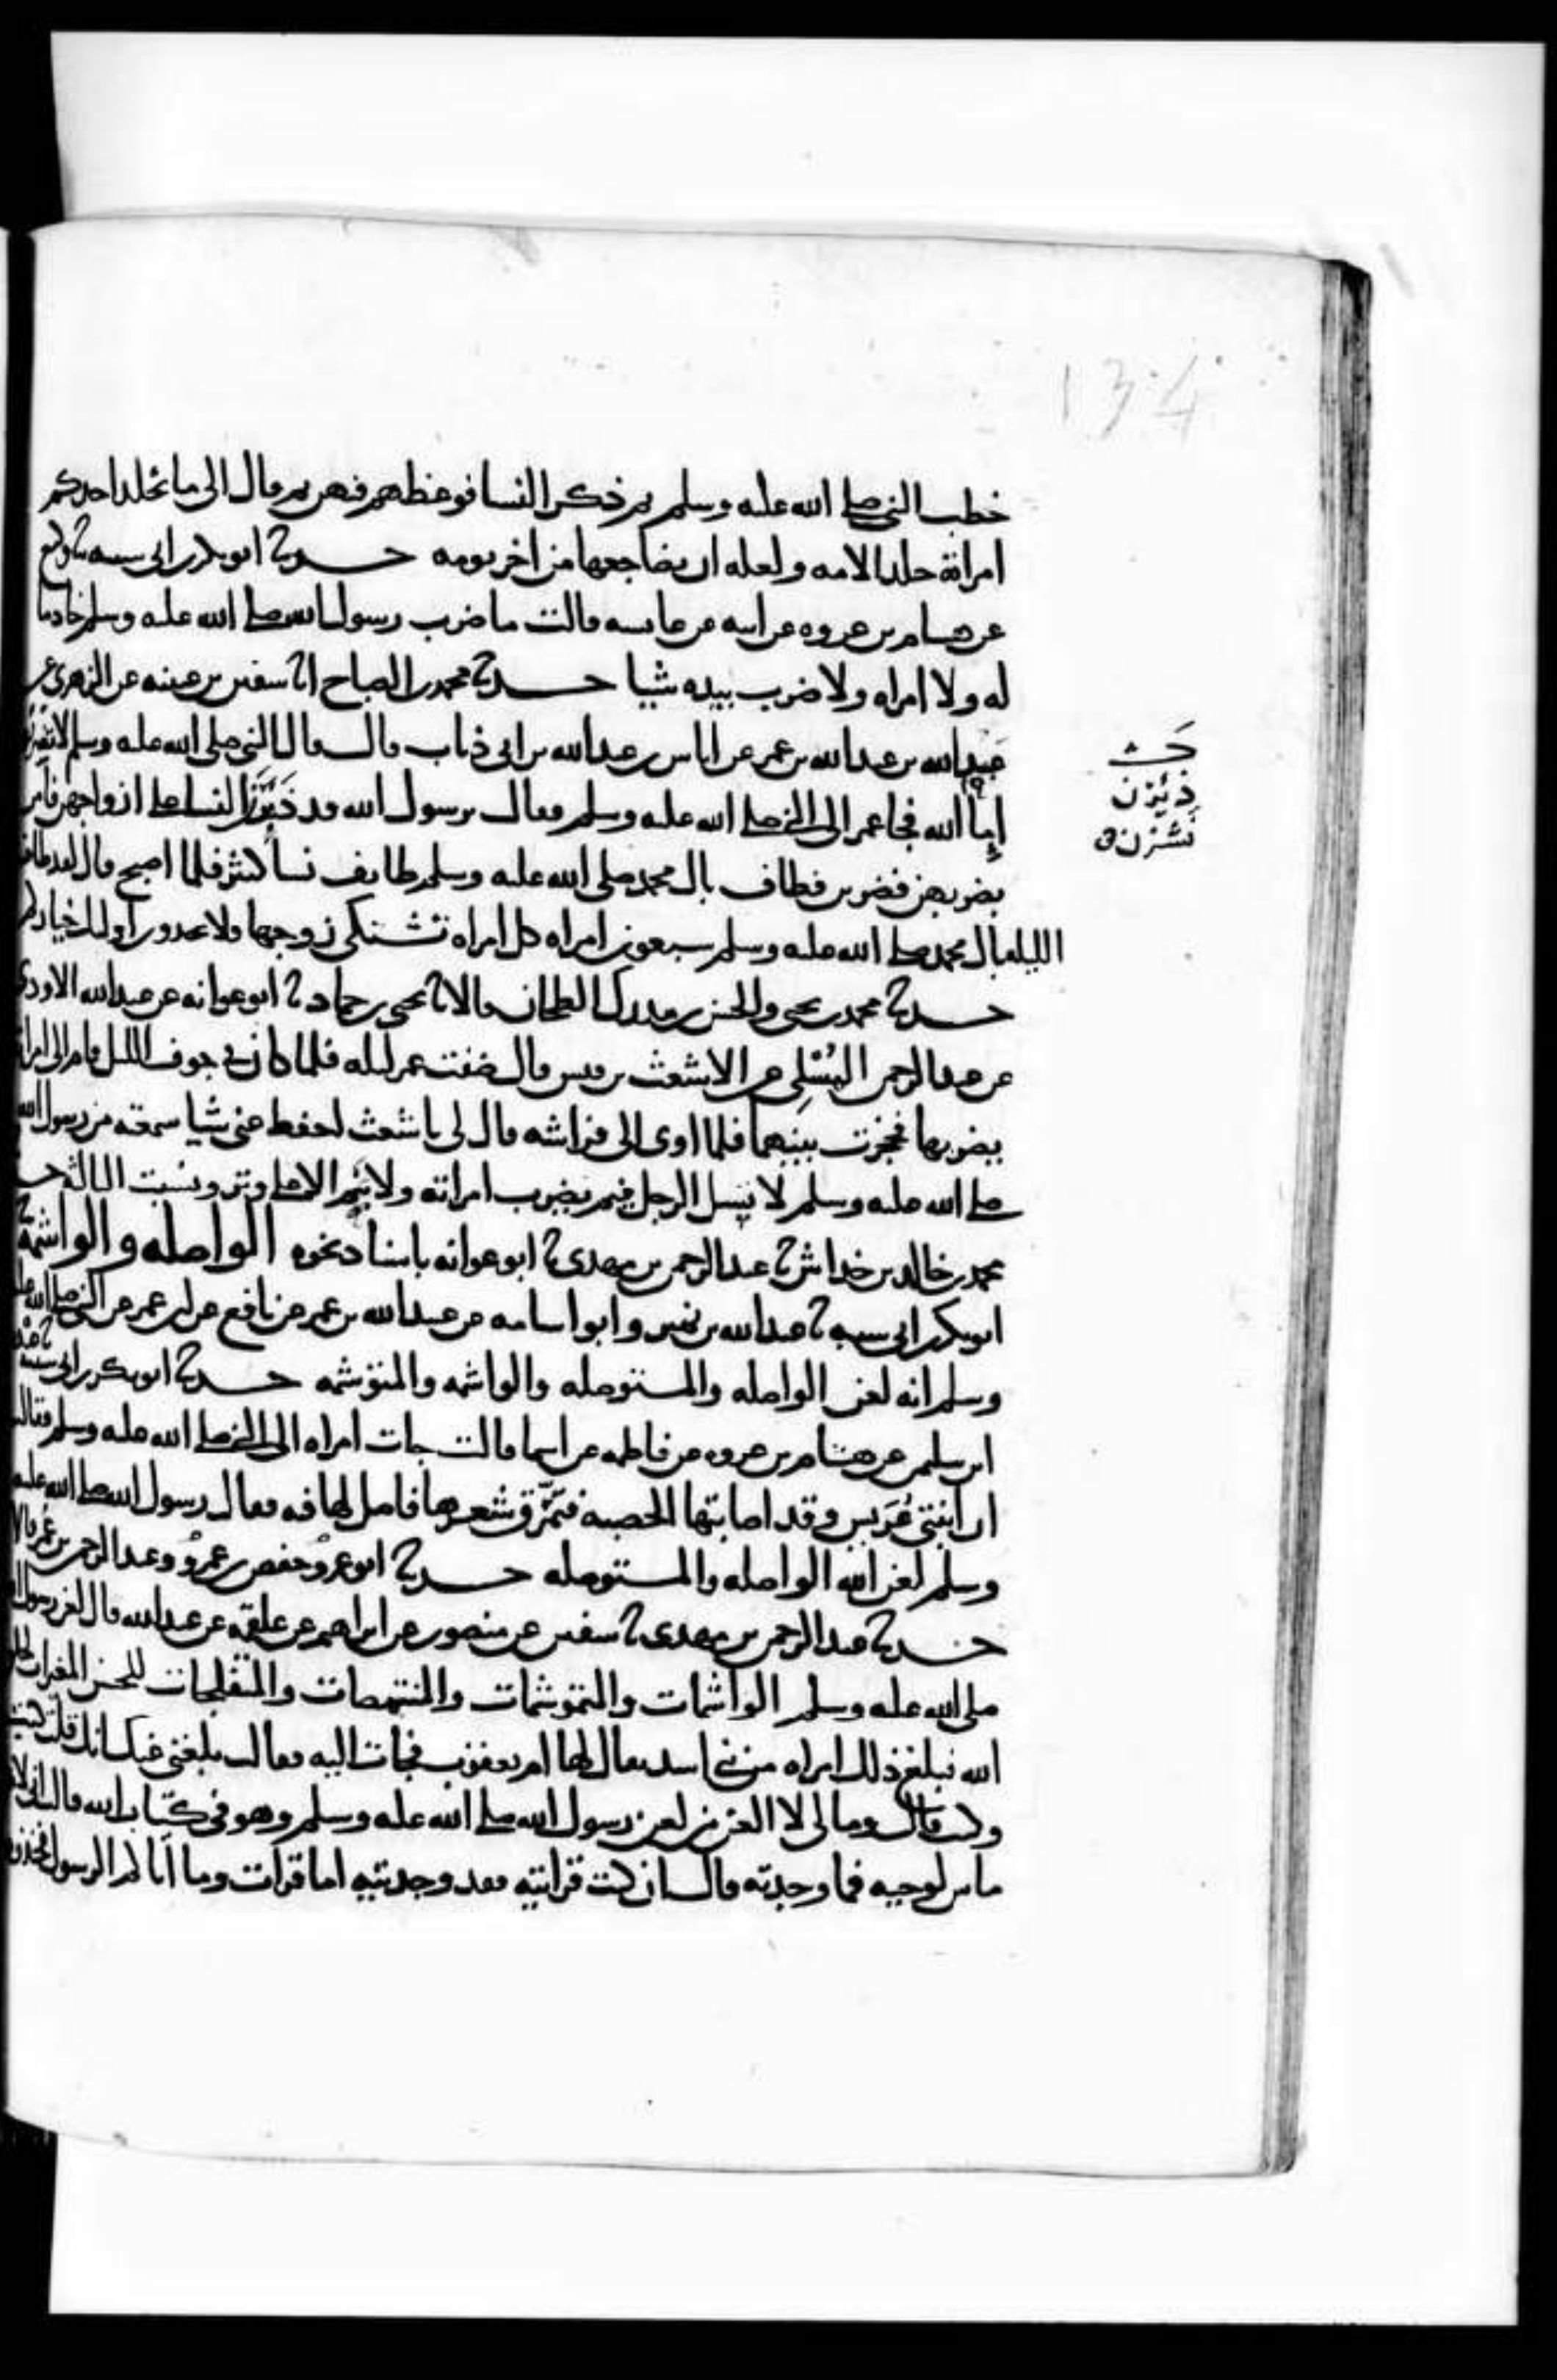 134
خطب النبي صلى الله عليه وسلم ثم ذكر النسا فوعظهم فيهن ثم قال الى ما يجلد احدكم
امراته جلد الامه ولعله ان يضاجعها من اخر يومه حدثنا ابو بكر بن ابي شيبه نا وكيع
عن هشام بن عروه عن ابيه عن عايشه قالت ما ضرب رسول الله صلى الله عليه وسلم خادما
له ولا امراه ولا ضرب بيده شيا حدثنا محمد بن الصباح انا سفين بن عيينه عن الزهري عن
عبد الله بن عبد الله بن عمر عن اياس بن عبد الله بن ابي ذباب قال قال النبي صلى الله عليه وسلم لا تضربن
اما الله فجا عمر الى النبي صلى الله عليه وسلم فقال يرسول الله قد ذئرن النسا على ازواجهن فامر
بضربهن فضربن فطاف بال محمد صلى الله عليه وسلم طايف نسا كثير فلما اصبح قال لقد طاف
الليله بال محمد صلى الله عليه وسلم سبعون امراه كل امراه تشتكي زوجها ولا تجدون اوليك خياركم
ذئرن
نشزن
حدثنا محمد بن يحيى والحسن بن مدرك الطحان قالا نا يحيى بن حماد نا ابو عوانه عن عبد الله الاودي
عن عبد الرحمن المسلي عن الاشعث بن قيس قال ضفت عمر ليله فلما كان في جوف الليل قام الى امراته
يضربها فحجزت بينهما فلما اوى الى فراشه قال لي ياشعث احفظ عني شيا سمعته من رسول الله
صلى الله عليه وسلم لا يسل الرجل فيم يضرب امراته ولا ينم الا على وتر ونسيت الثالثه حدثنا
محمد بن خالد بن خداش نا عبد الرحمن بن مهدي نا ابو عوانه باسناد نحوه الواصله والواشمه
ابو بكر بن ابي شيبه نا عبد الله بن نمير وابو اسامه عن عبيد الله بن عمر عن نافع عن ابن عمر عن النبي صلى الله عليه
وسلم انه لعن الواصله والمستوصله والواشمه والمتوشمه حدثنا ابو بكر بن ابي شيبه نا عبده
ابن سليمن عن هشام بن عروه عن فاطمه عن اسما قالت جات امراه الى النبي صلى الله عليه وسلم فقالت
ان ابنتي عريس وقد اصابتها الحصبه فتمرق شعرها فاصل لها فيه فقال رسول الله صلى الله عليه
وسلم لعن الله الواصله والمستوصله حدثنا ابو عمرو حفص بن عمرو وعبد الرحمن بن عمر قالا
حدثنا عبد الرحمن بن مهدي نا سفين عن منصور عن ابراهيم عن علقمه عن عبد الله قال لعن رسول الله
صلى الله عليه وسلم الواشمات والمتوشمات والمنتمصات والمتفلجات للحسن المغيرات لخلق
الله فبلغ ذلك امراه من بني اسد يقال لها ام يعقوب فجات اليه فقالت بلغني عنك انك قلت كيت
وكيت قال وما لي لا العن من لعن رسول الله صلى الله عليه وسلم وهو في كتاب الله قالت اني لاقرا
ما بين لوحيه فما وجدته قال ان كنت قراتيه فقد وجدتيه اما قرات وما اتاكم الرسول فخذوه